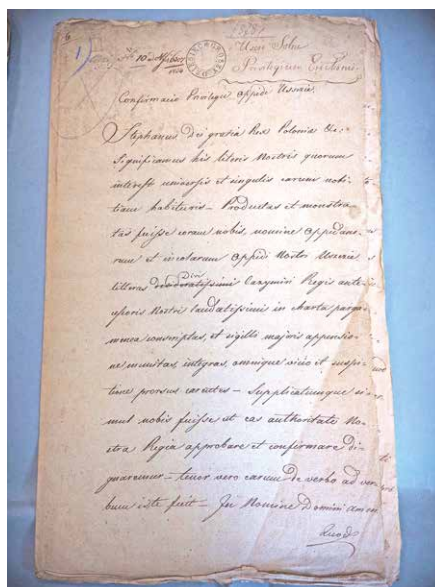 6
1)
10
Confirmacio Privilegii Oppidi Uscie
Stephanus dei gratia Rex Polonia &c:
Significamus his literis Nostris quorum
interest universis et singulis earum noti-
tiam habituris – Productas et monstra-
tas fuisse coram nobis, nomine oppidano-
rum et incolarum oppidi Nostri Uscie
litteras Divi Cazymiri Regis ante-
cessoris Nostri laudatissimi in charta parga-
minea conscriptas, et sigillo majoris appensio-
ne munitas, integras, omnique vicio et suspi-
tione prorsus carentes – Supplicatumque si-
mul nobis fuisse ut eas authoritate No-
stra Regia approbare et confirmare di-
gnaremur – tenor vero earum de verbo ad ver-
bum iste fuit – In Nomine Domini amen
Quod